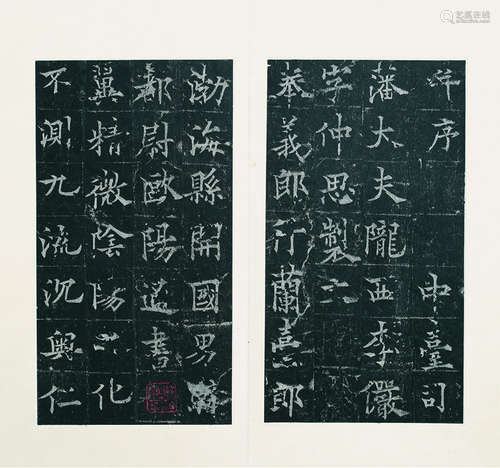 并序 中臺司
藩大夫隴西李儼
字仲思製文
奉義郎行蘭臺郎
渤海縣開國男騎
都尉歐陽通書
翼精微陰陽之化
不測九流沉奧仁
艺狐在线